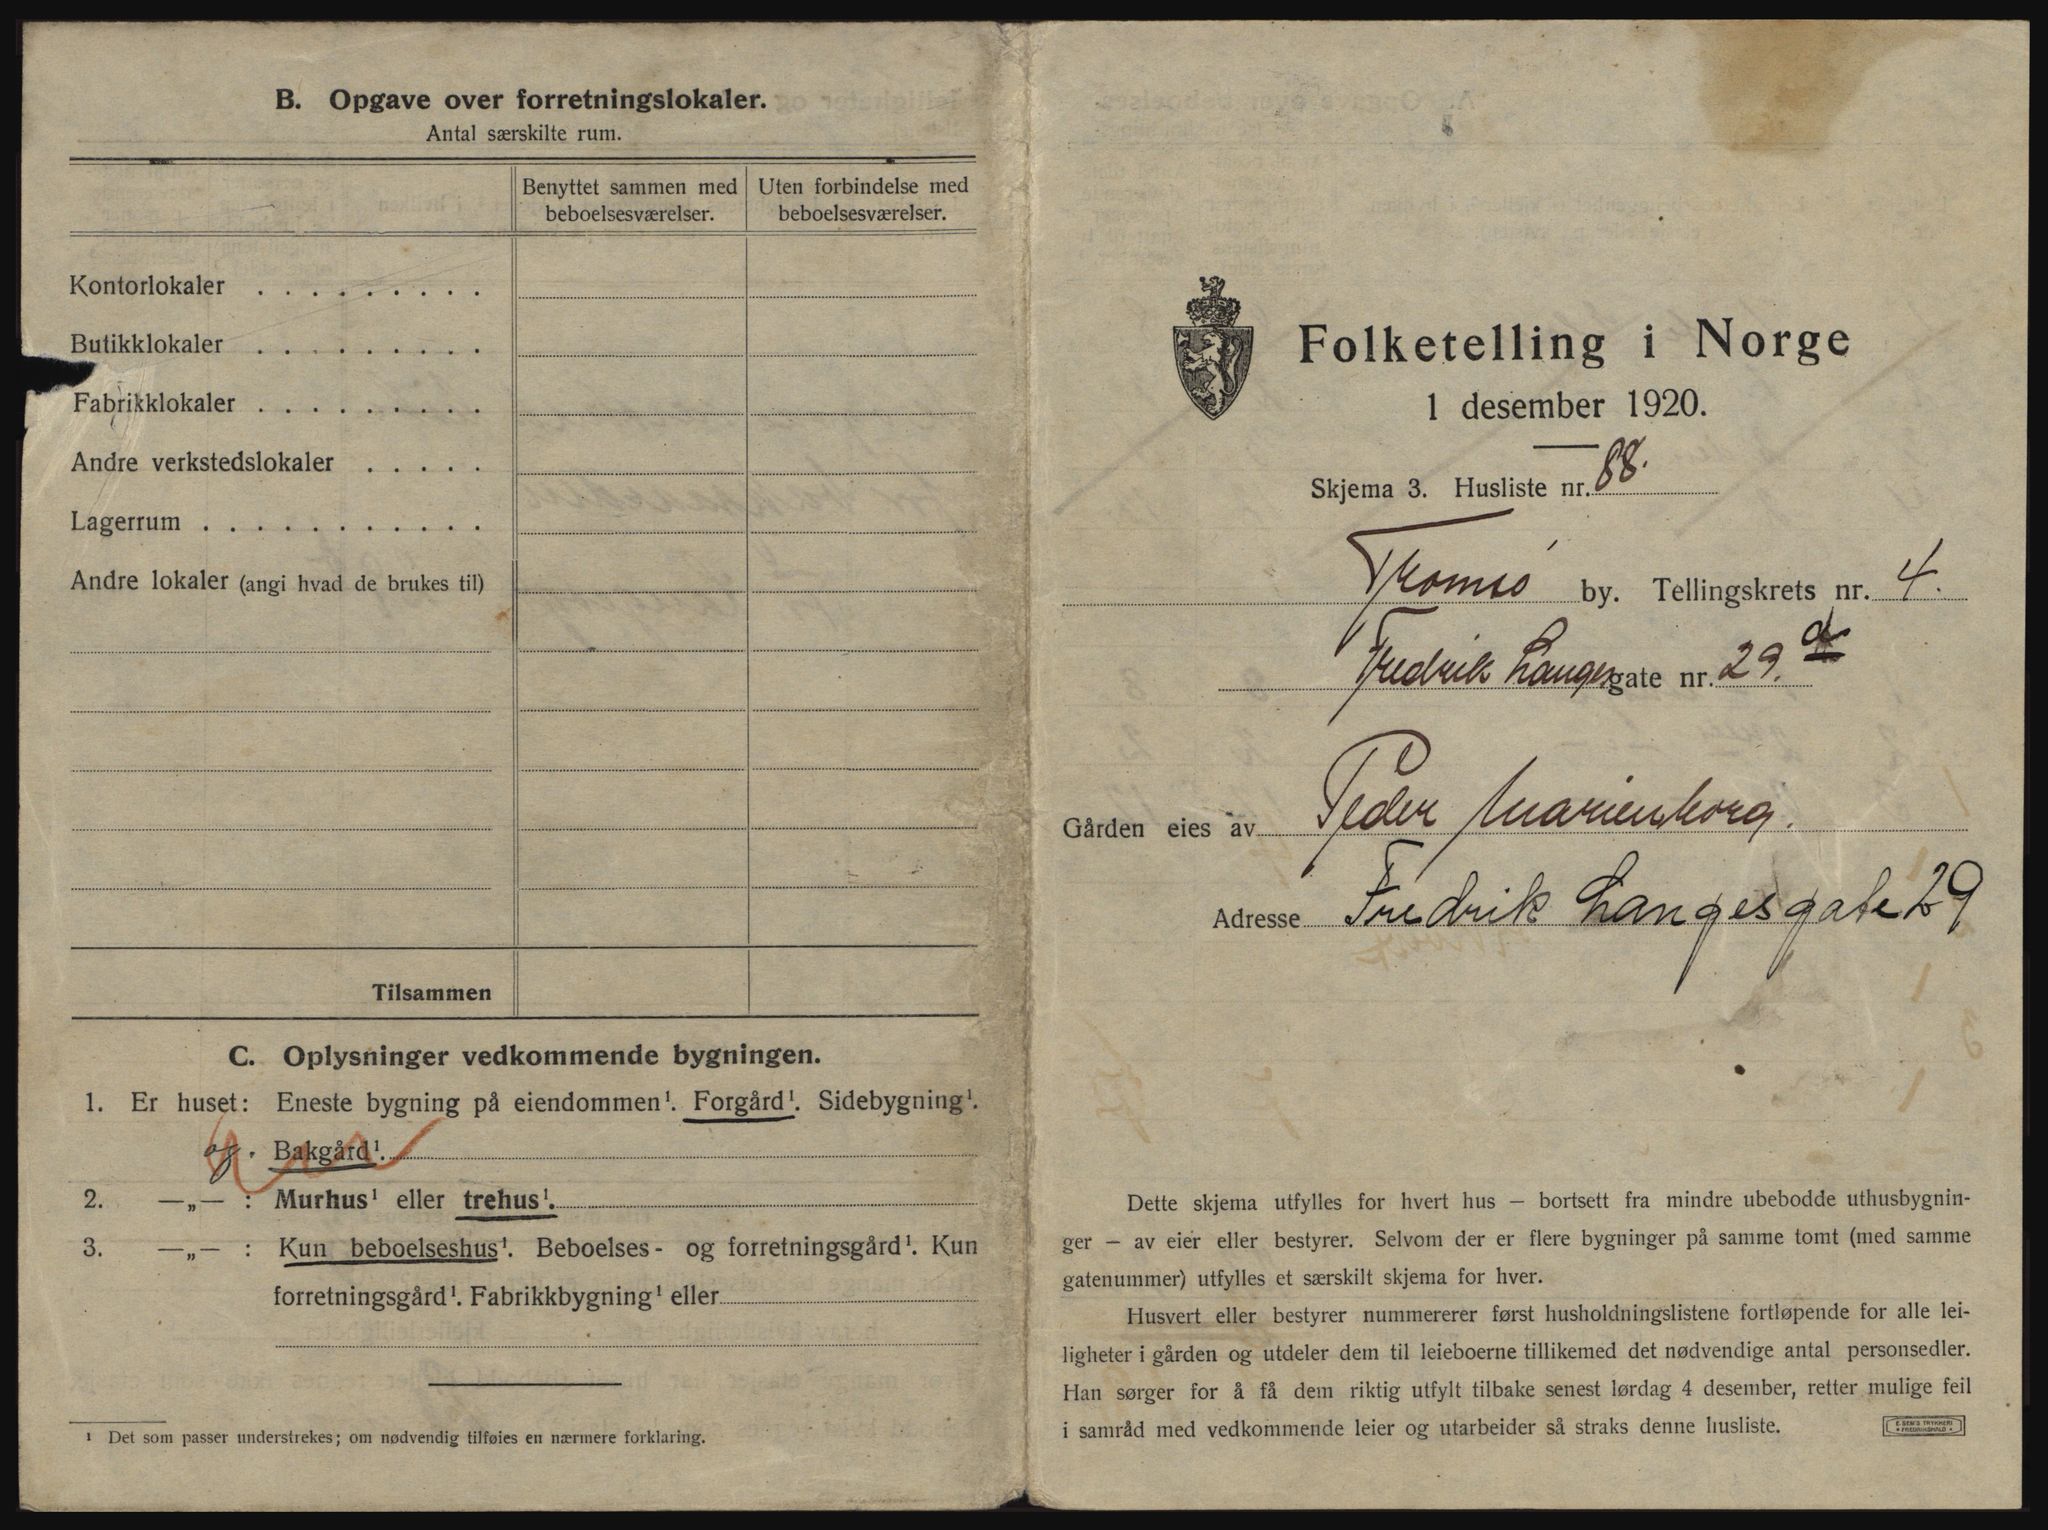 B. Opgave over forretningslokaler.
Antal særskilte rum.
Benyttet sammen med beboelsesværelser.
Uten forbindelse med beboelsesværelser.
Kontorlokaler . . . . . . . . .
Butikklokaler . . . . . . . . .
Fabrikklokaler . . . . . . . . .
Andre verkstedslokaler . . . . .
Lagerrum . . . . . . . . . . .
Andre lokaler (angi hvad de brukes til)
Tilsammen
C. Oplysninger vedkommende bygningen.
1. Er huset: Eneste bygning på eiendommen¹. Forgård¹. Sidebygning¹.
og. Bakgård¹.
2. —„— : Murhus¹ eller trehus¹.
3. —„— : Kun beboelseshus¹. Beboelses- og forretningsgård¹. Kun
forretningsgård¹. Fabrikkbygning¹ eller
¹ Det som passer understrekes; om nødvendig tilføies en nærmere forklaring.
Folketelling i Norge
1 desember 1920.
Skjema 3. Husliste nr. 88.
Tromsø by. Tellingskrets nr. 4.
Fredrik Langes gate nr. 29. d
Gården eies av Peder Marienborg.
Adresse Fredrik Langesgate 29
Dette skjema utfylles for hvert hus — bortsett fra mindre ubebodde uthusbygnin-
ger — av eier eller bestyrer. Selvom der er flere bygninger på samme tomt (med samme
gatenummer) utfylles et særskilt skjema for hver.
Husvert eller bestyrer nummererer først husholdningslistene fortløpende for alle lei-
ligheter i gården og utdeler dem til leieboerne tillikemed det nødvendige antal personsedler.
Han sørger for å få dem riktig utfylt tilbake senest lørdag 4 desember, retter mulige feil
i samråd med vedkommende leier og utarbeider så straks denne husliste.
E. SEM'S TRYKKERI
FREDRIKSHALD